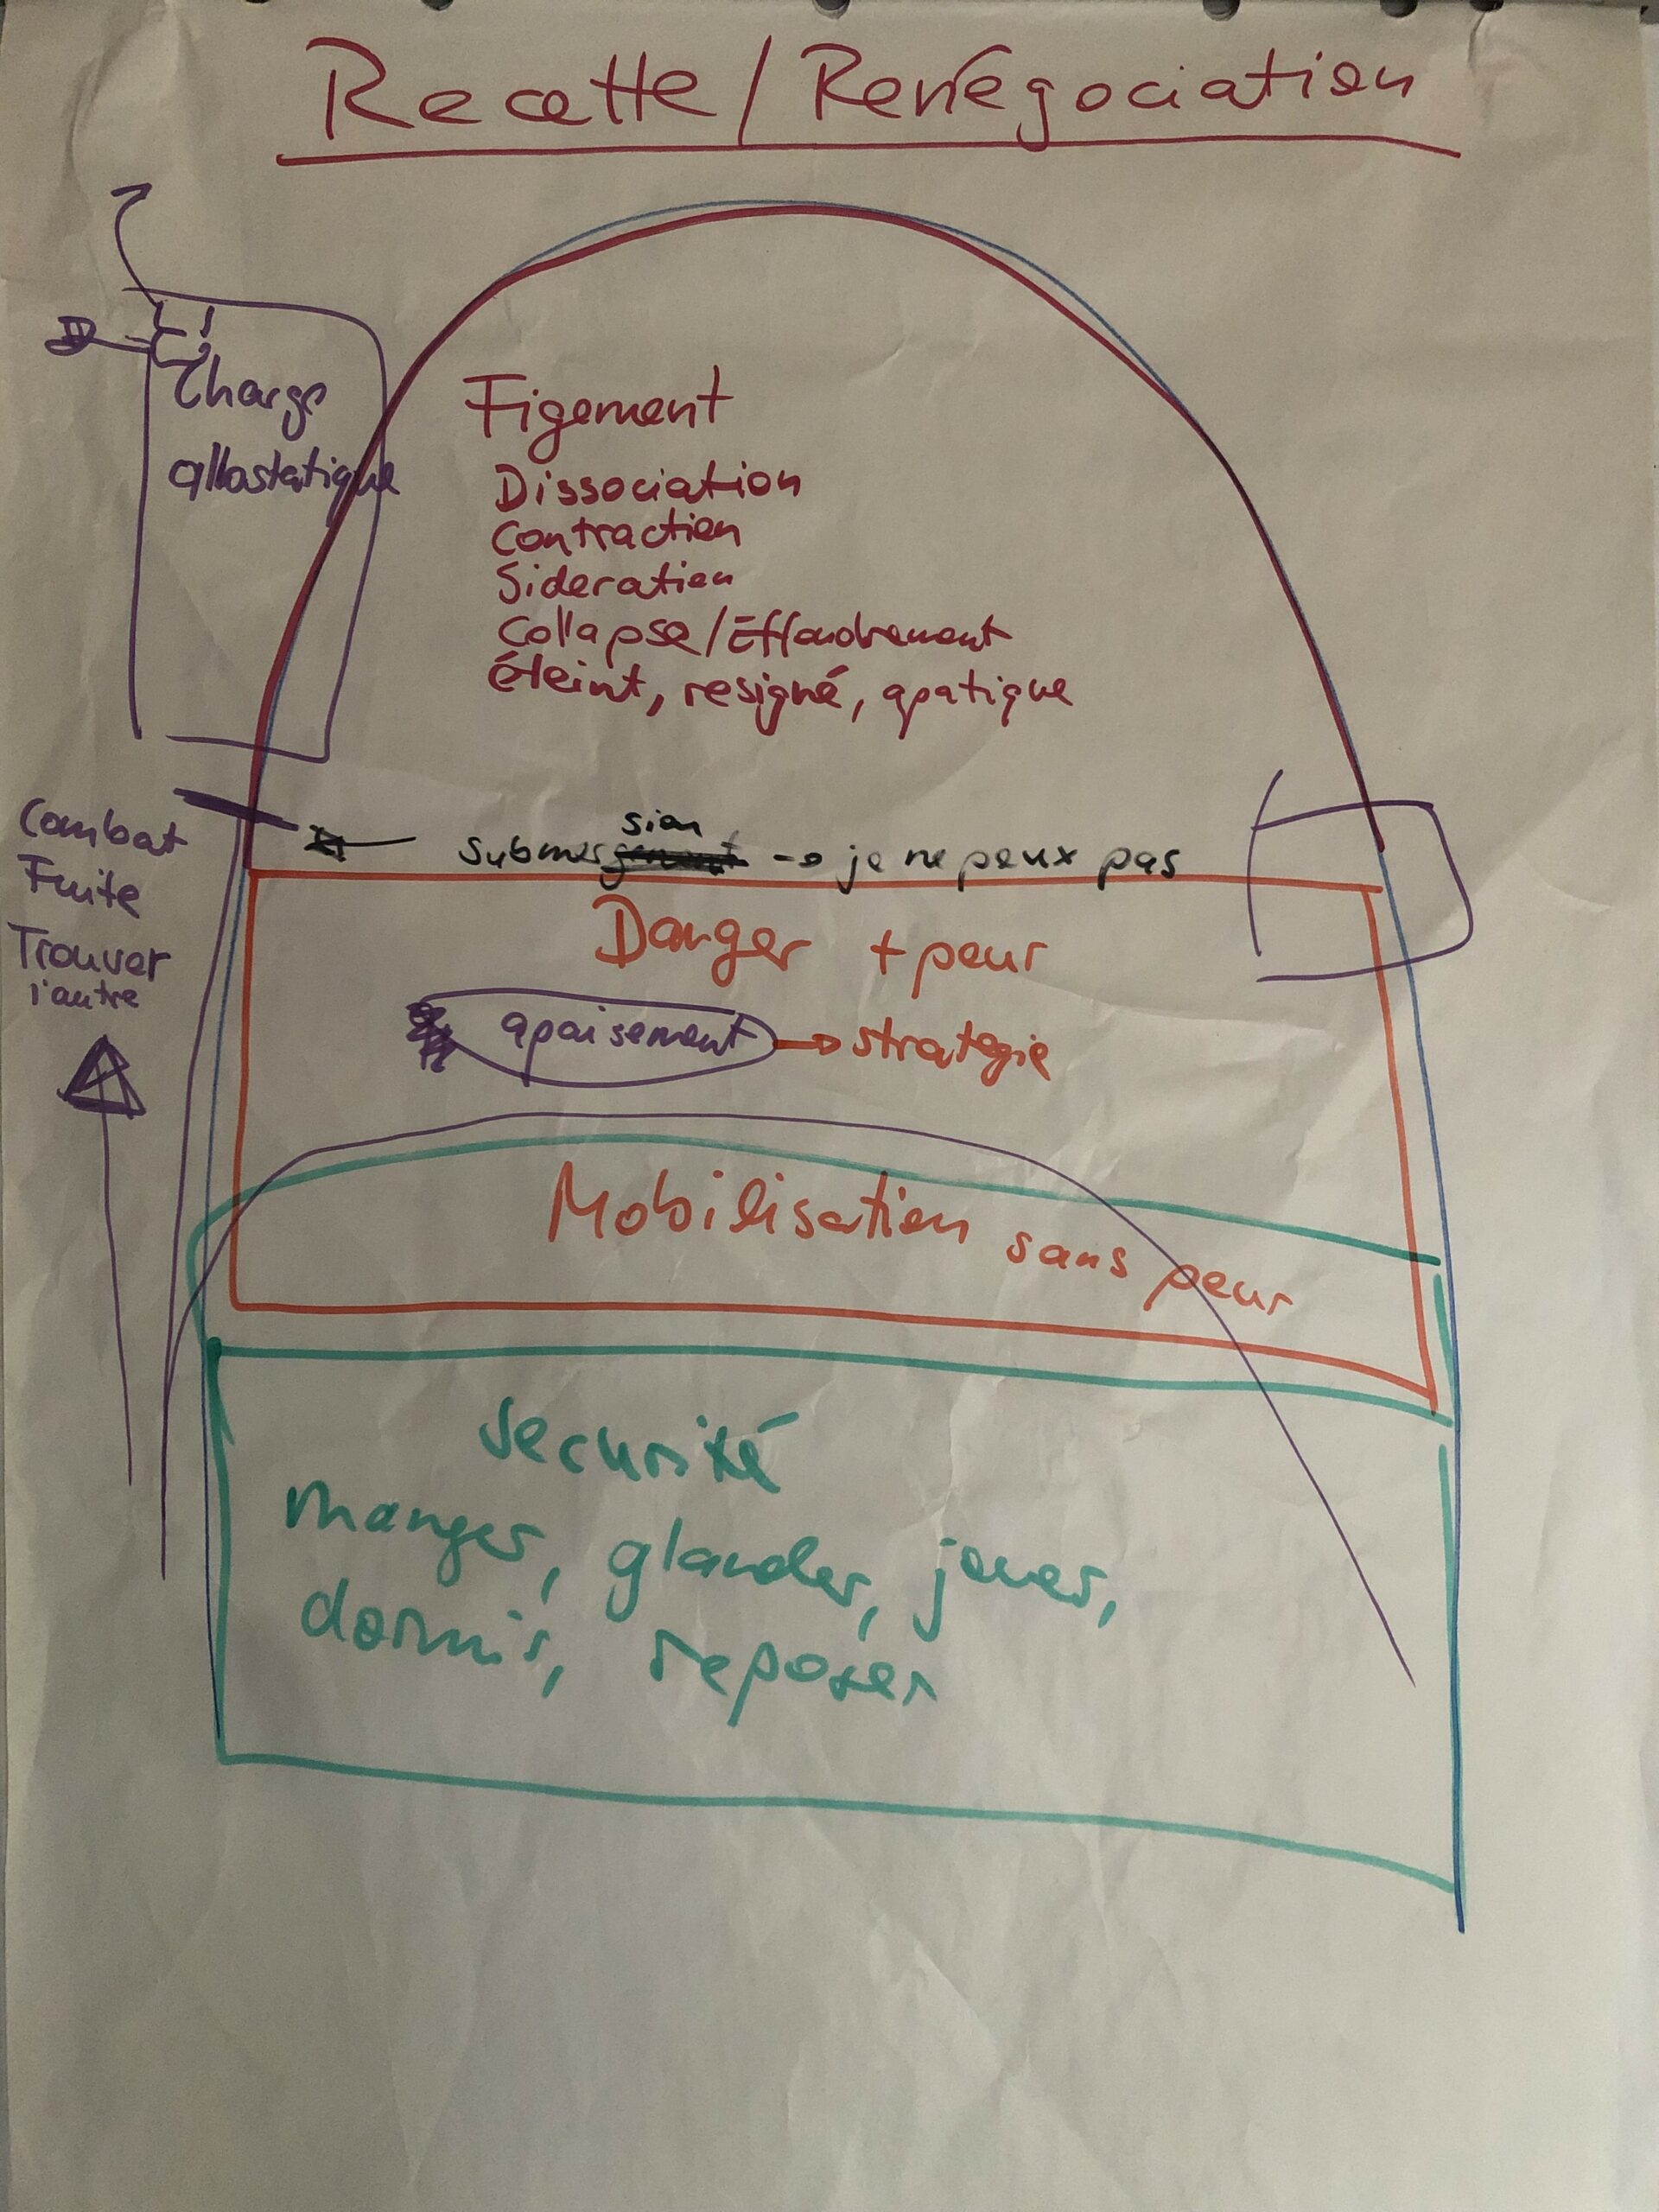 Recette / Renégociation
Charge
allostatique
Figement
Dissociation
Contraction
Sideration
Collapse/Effondrement
éteint, resigné, apatique
Combat
Fuite
Trouver
l'autre
submersion → je ne peux pas
Danger + peur
apaisement → strategie
Mobilisation sans peur
securité
manger, glander, jouer,
dormir, reposer